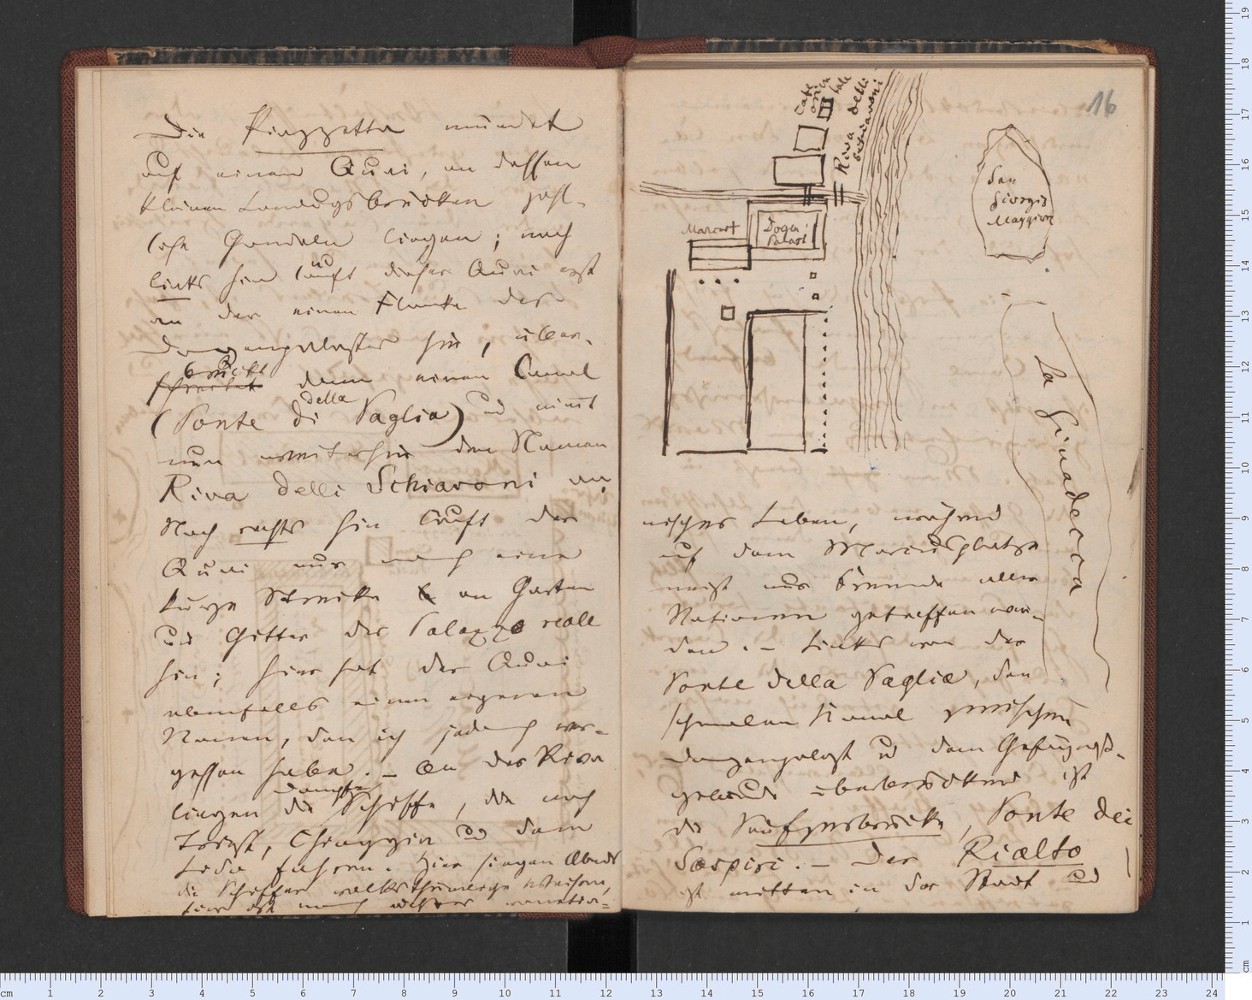 Die Piazzetta mündet
auf einen Quai, an dessen
kleinen Landungsbrücken zahl-
lose Gondeln liegen; nach
links hin läuft dieser Quai erst
an der einen Flanke des
Dogenpalastes hin, über-
brückt dann einen Canal
(Ponte della Paglia) und nimt
nun weiterhin den Namen
Riva delli Schiavoni an.
Nach rechts hin läuft der
Quai nur noch eine
kurze Strecke an Garten
und Gitter des Palazzo reale
hin; hier hat der Quai
ebenfalls einen eigenen
Namen, den ich jedoch ver-
gessen habe. – An der Riva
liegen die Dampfschiffe, die nach
Triest, Chioggia und dem
Lido fahren. Hier singen Abends
die Schiffer volksthümliche Weisen,
hier ist noch venetia-
16
Riva delli
Schiavoni
San
Giorgio
Maggiore
Marcus
Dogen
Palast
La Giudecca
nisches Leben, während
auf dem Marcusplatze
meist nur Fremde aller
Nationen getroffen wer-
den. – Links von der
Ponte della Paglia, den
schmalen Kanal zwischen
Dogenpalast und dem Gefängniß-
gebäude überbrückend ist
die Seufzerbrücke, Ponte dei
Sospiri. – Der Rialto
ist mitten in der Stadt und